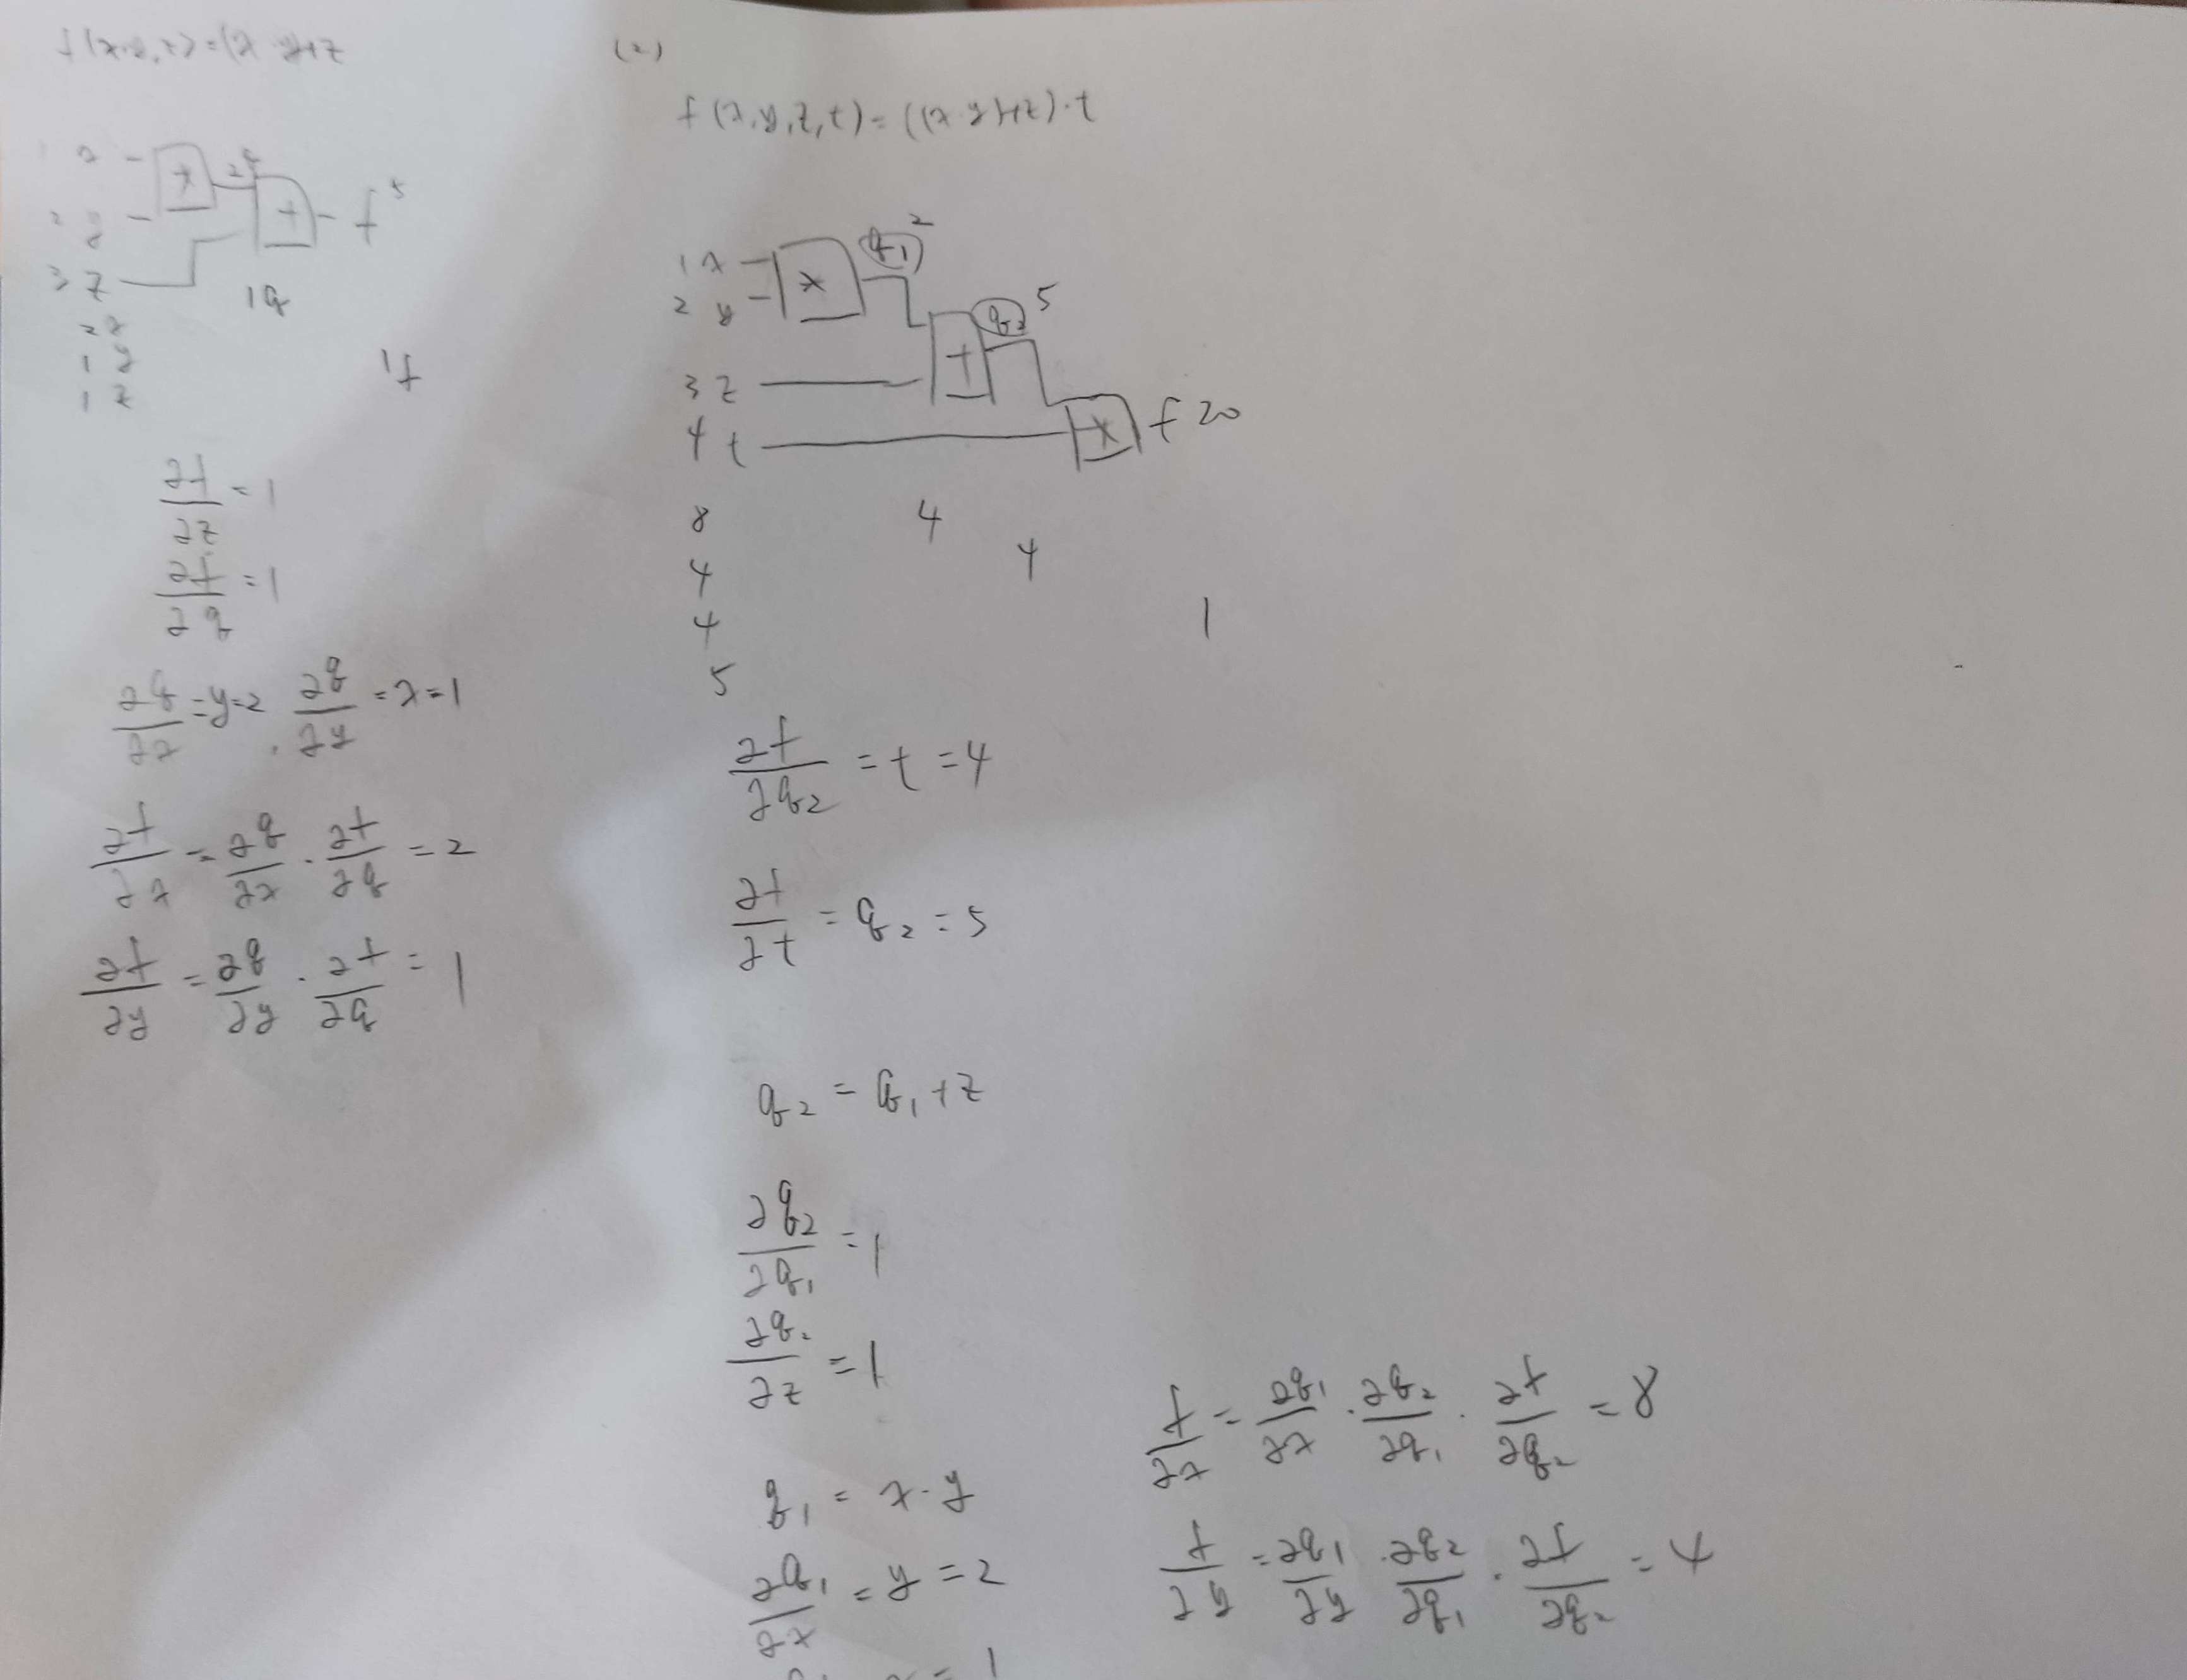 f(x,y,z)=(x·y)+z
1 x
×
2 q
2 y
+
f 5
3 z
1 q
2 x
1 y
1 z
1 f
∂f/∂z = 1
∂f/∂q = 1
∂q/∂x = y = 2, ∂q/∂y = x = 1
∂f/∂x = ∂q/∂x · ∂f/∂q = 2
∂f/∂y = ∂q/∂y · ∂f/∂q = 1
(2)
f(x,y,z,t) = ((x·y)+z)·t
1 x
2 y
×
q₁ 2
q₂ 5
+
3 z
4 t
×
f 20
8
4
4
4
4
1
5
∂f/∂q₂ = t = 4
∂f/∂t = q₂ = 5
q₂ = q₁ + z
∂q₂/∂q₁ = 1
∂q₂/∂z = 1
q₁ = x·y
∂q₁/∂x = y = 2
= 1
f/∂x = ∂q₁/∂x · ∂q₂/∂q₁ · ∂f/∂q₂ = 8
f/∂y = ∂q₁/∂y · ∂q₂/∂q₁ · ∂f/∂q₂ = 4